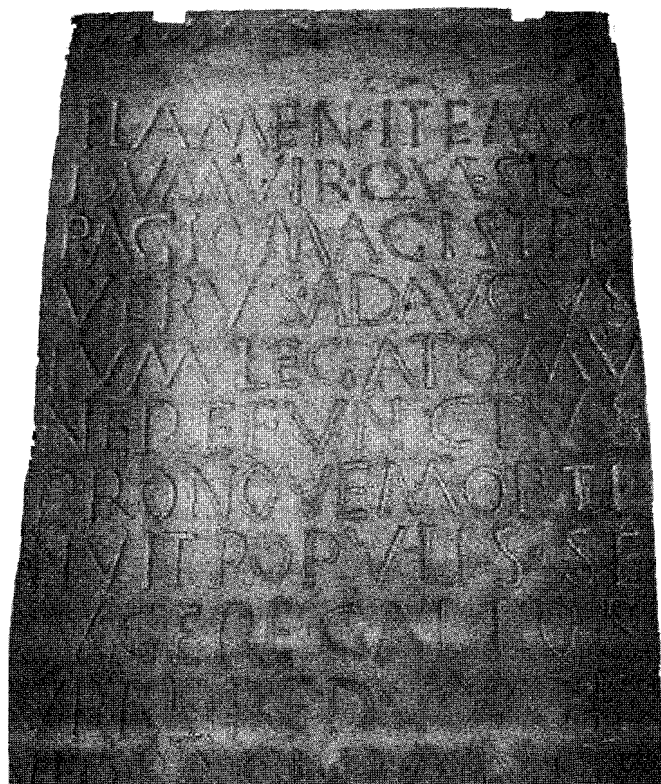 FLAMEN·ITEM
DVMVIR·QVESTOR
PAGIQ MAGISTER
VERVS AD AVGVS
TVM LEGATO MV
NERE FVNCTVS
PRO NOVEM OPTI
NVIT POPVLIS SE
IVNGERE GALLOS